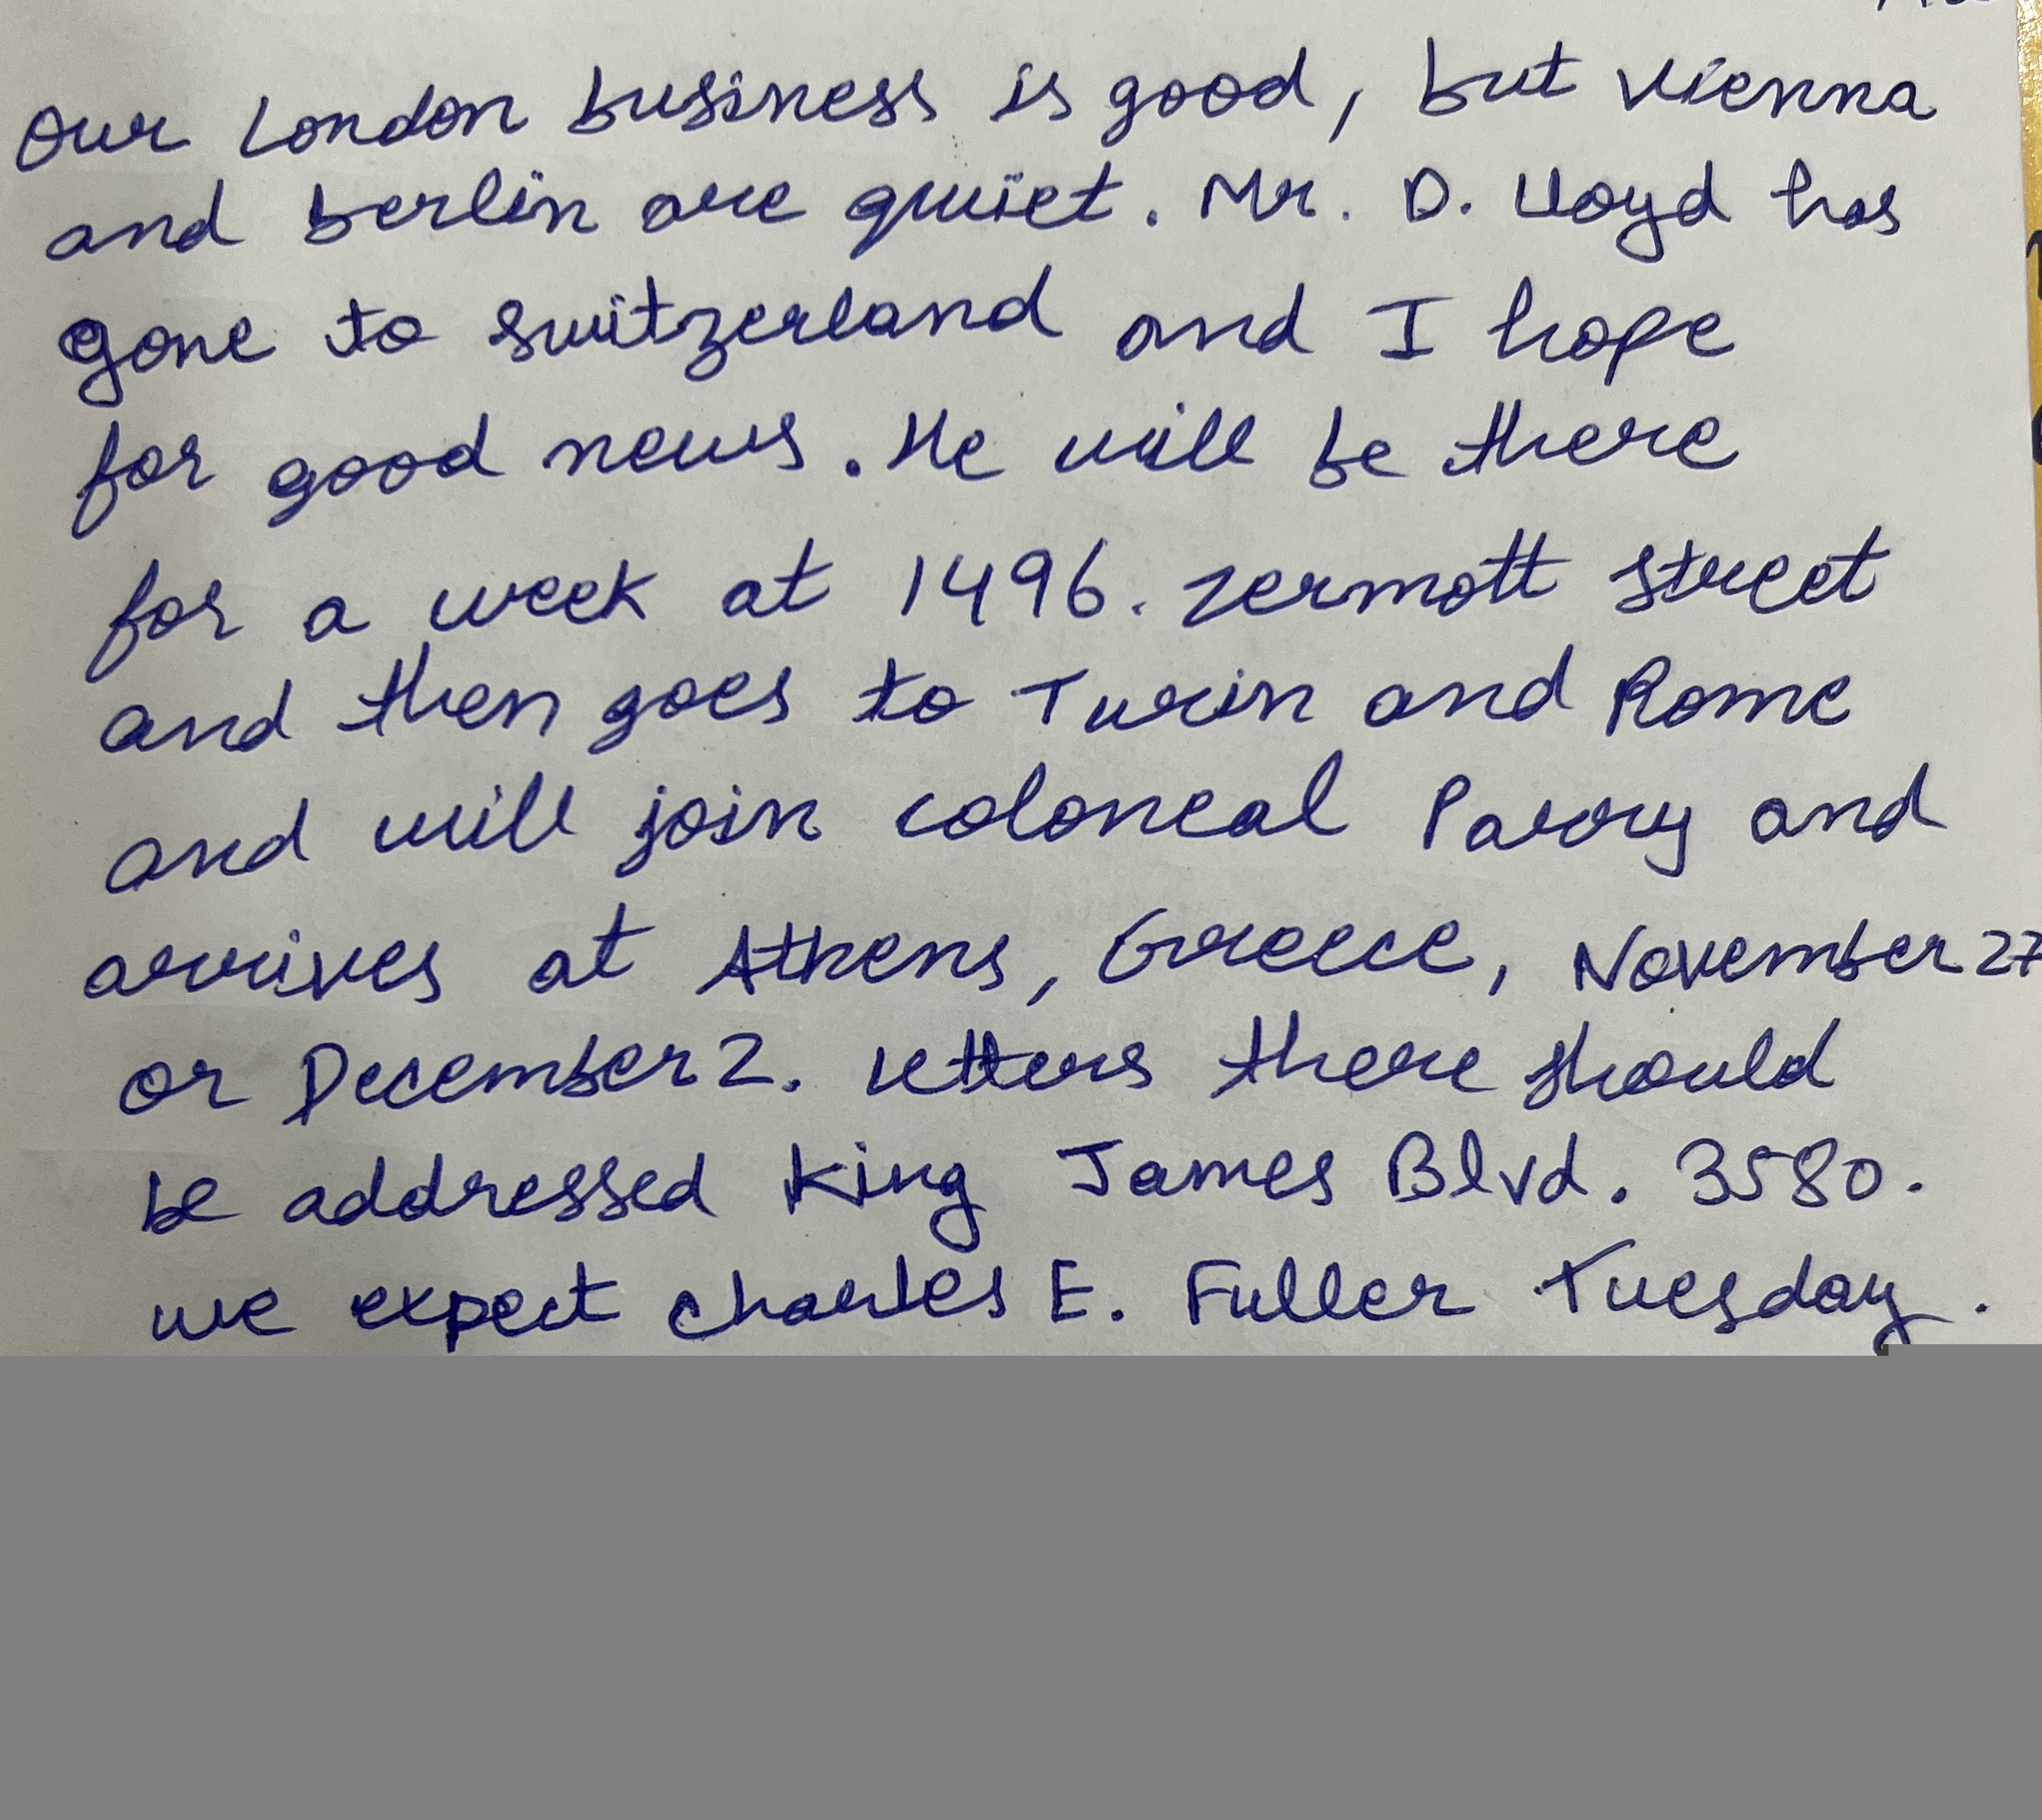 Our London business is good, but Vienna
and berlin are quiet. Mr. D. Lloyd has
gone to switzerland and I hope
for good news. He will be there
for a week at 1496. zermott street
and then goes to Turin and Rome
and will join coloneal Parry and
arrives at Athens, Greece, November 27
or December 2. Letters there should
be addressed King James Blvd. 3580.
we expect charles E. Fuller Tuesday.